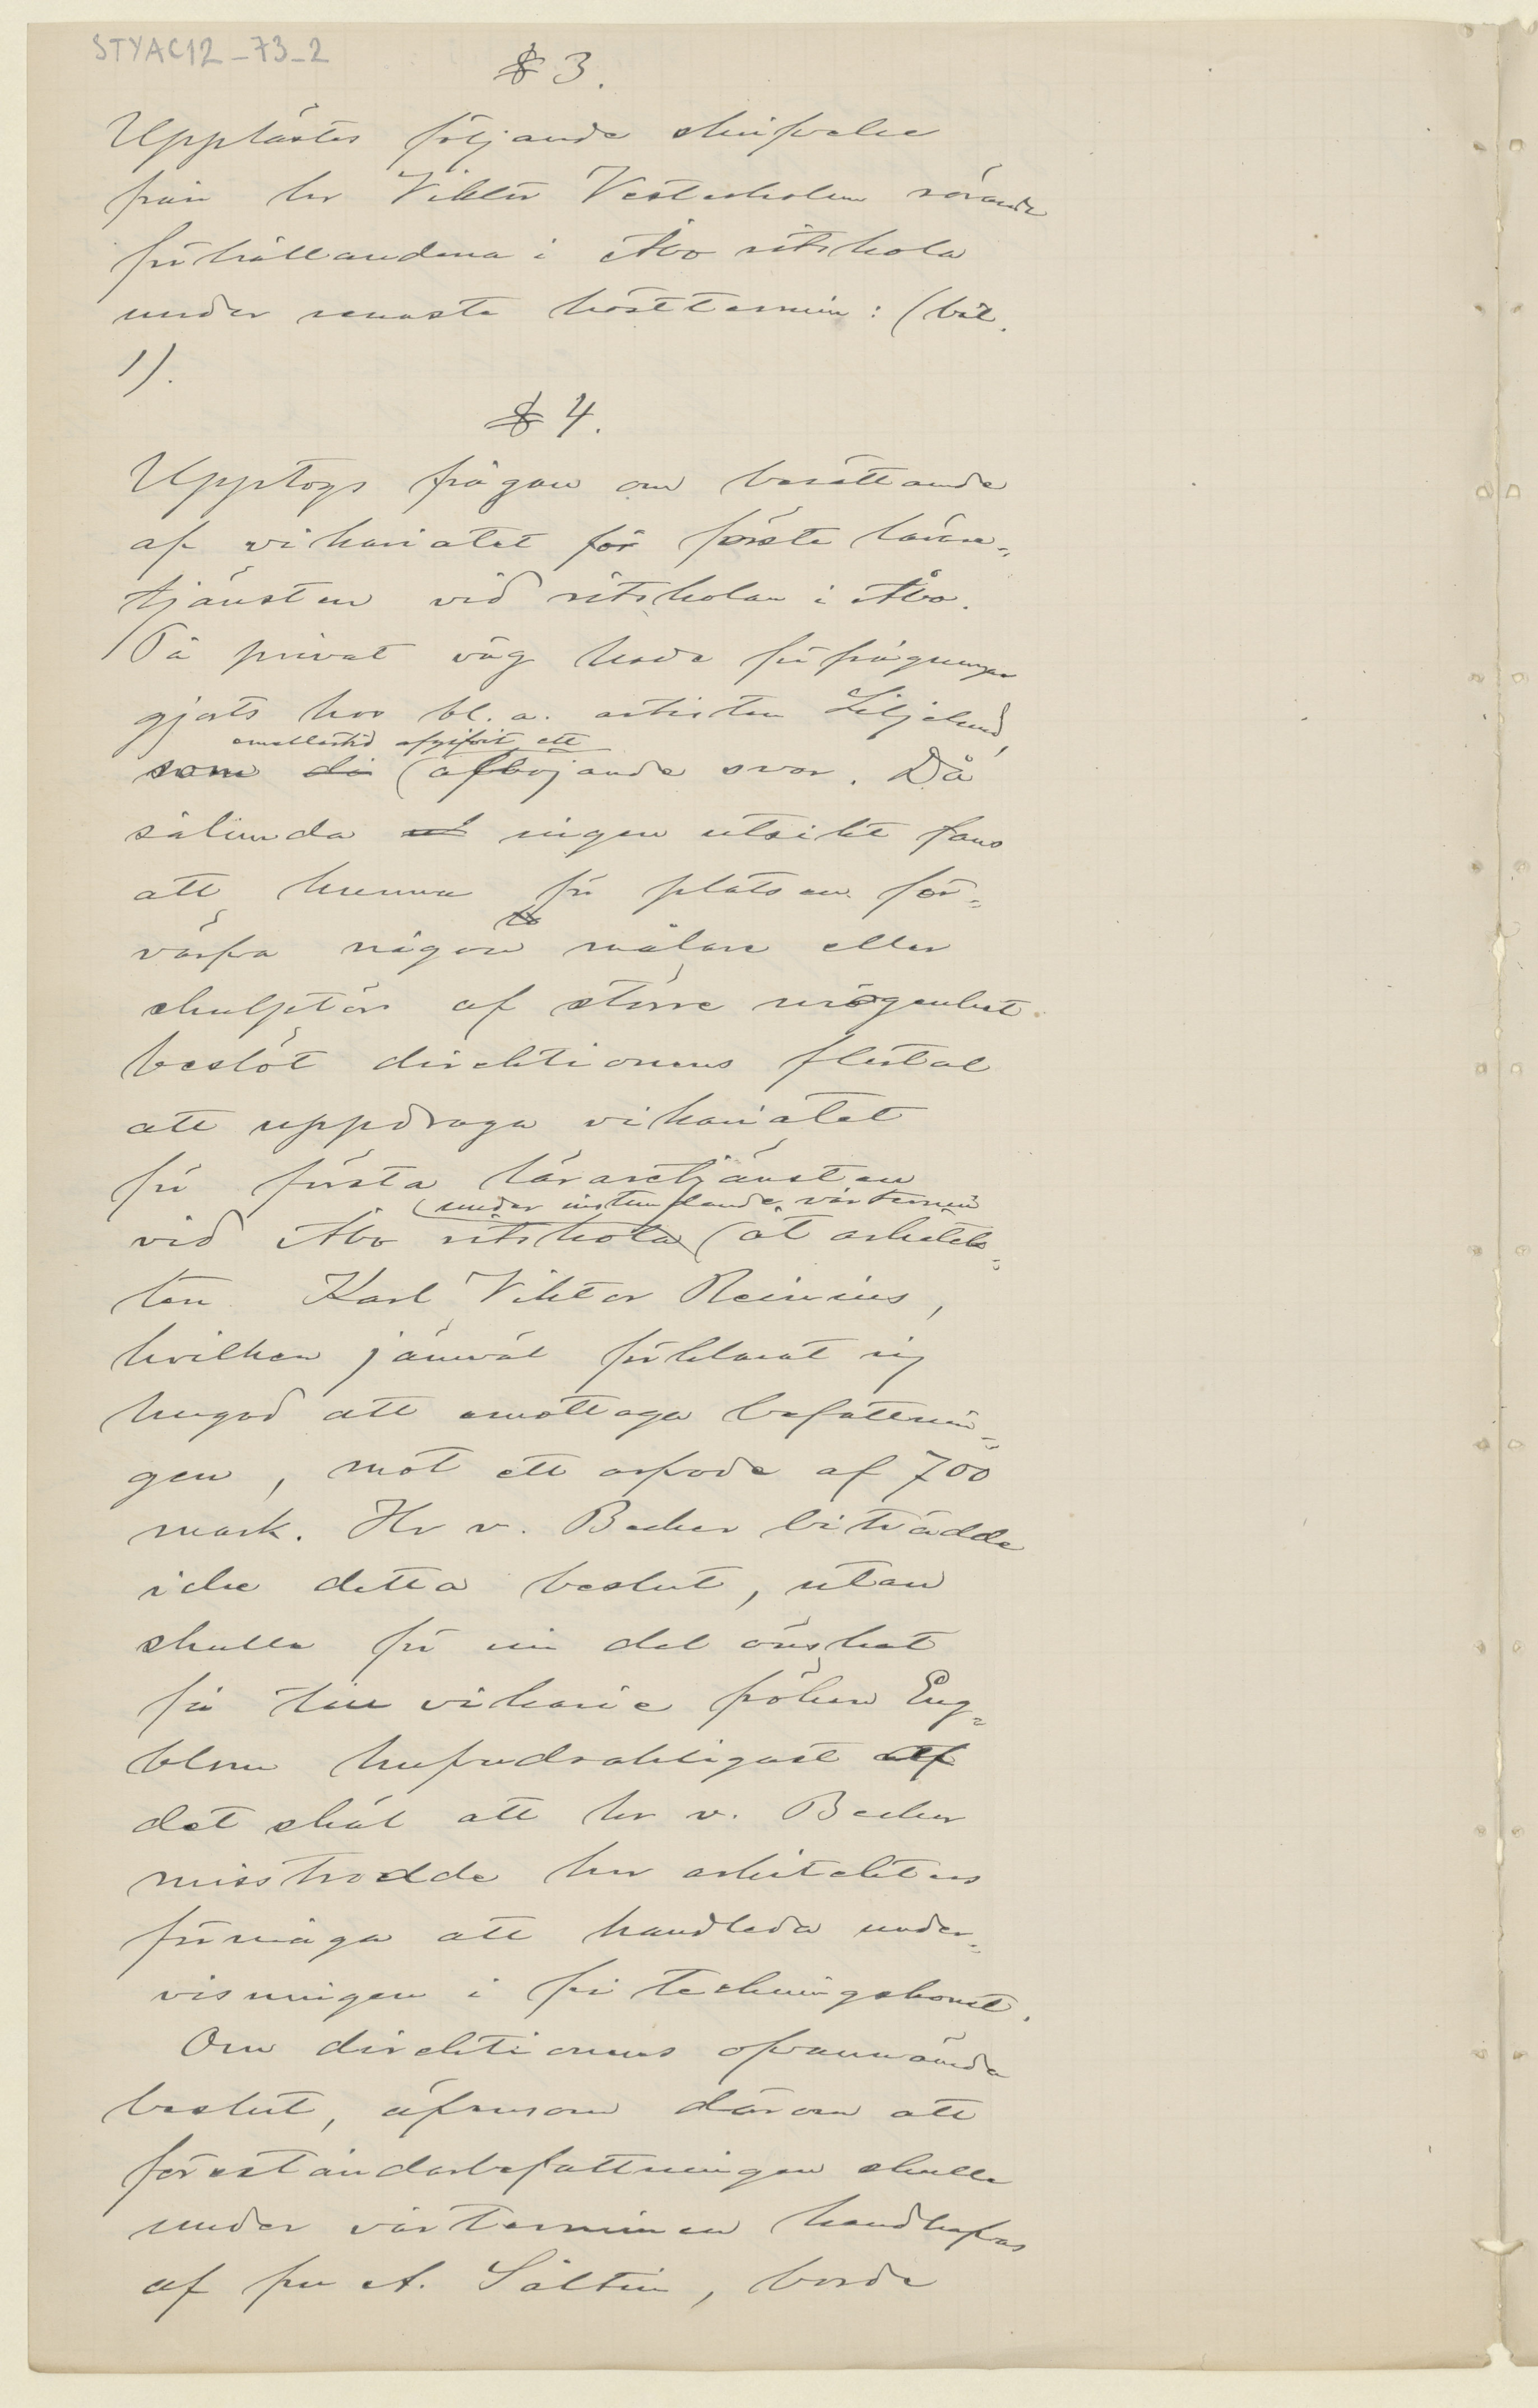 STYAC12_73_2
§ 3.
Upplästes följande skrifvelse
från hr Viktor Vesterholm rörande
förhållandena i Åbo ritskola
under senaste hösttermin: (bil.
1).
§ 4.
Upptogs frågan om besättande
af vikariatet för förste lärare-
tjänsten vid ritskolan i Åbo.
På privat väg hade förfrågningar
gjorts hos bl. a. artisten Liljelund,
emellertid afgifvit ett
som (afböjande svar. Då
sålunda ingen utsikt fans
att kunna för platsen för-
värfva någon målare eller
skulptör af större mogenhet
beslöt direktionens flertal
att uppdraga vikariatet
för första läraretjänsten
(under instundande vårtermin
vid Åbo ritskola (åt arkitek-
ten Karl Viktor Reinius,
hvilken jämväl förklarat sig
hugad att emottaga befattnin-
gen, mot ett arfvode af 700
mark. Hr v. Becker biträdde
icke detta beslut, utan
skulle för sin del önskat
få till vikarie fröken Eng-
blom hufvudsakligast af
det skäl att hr v. Becker
misstrodde hr arkitektens
förmåga att handleda under-
visningen i fri teckningskonst.
Om direktionens ofvannämda
beslut, äfvensom därom att
föreståndarbefattningen skulle
under vårterminen handhafvas
af fru A. Sältin, borde